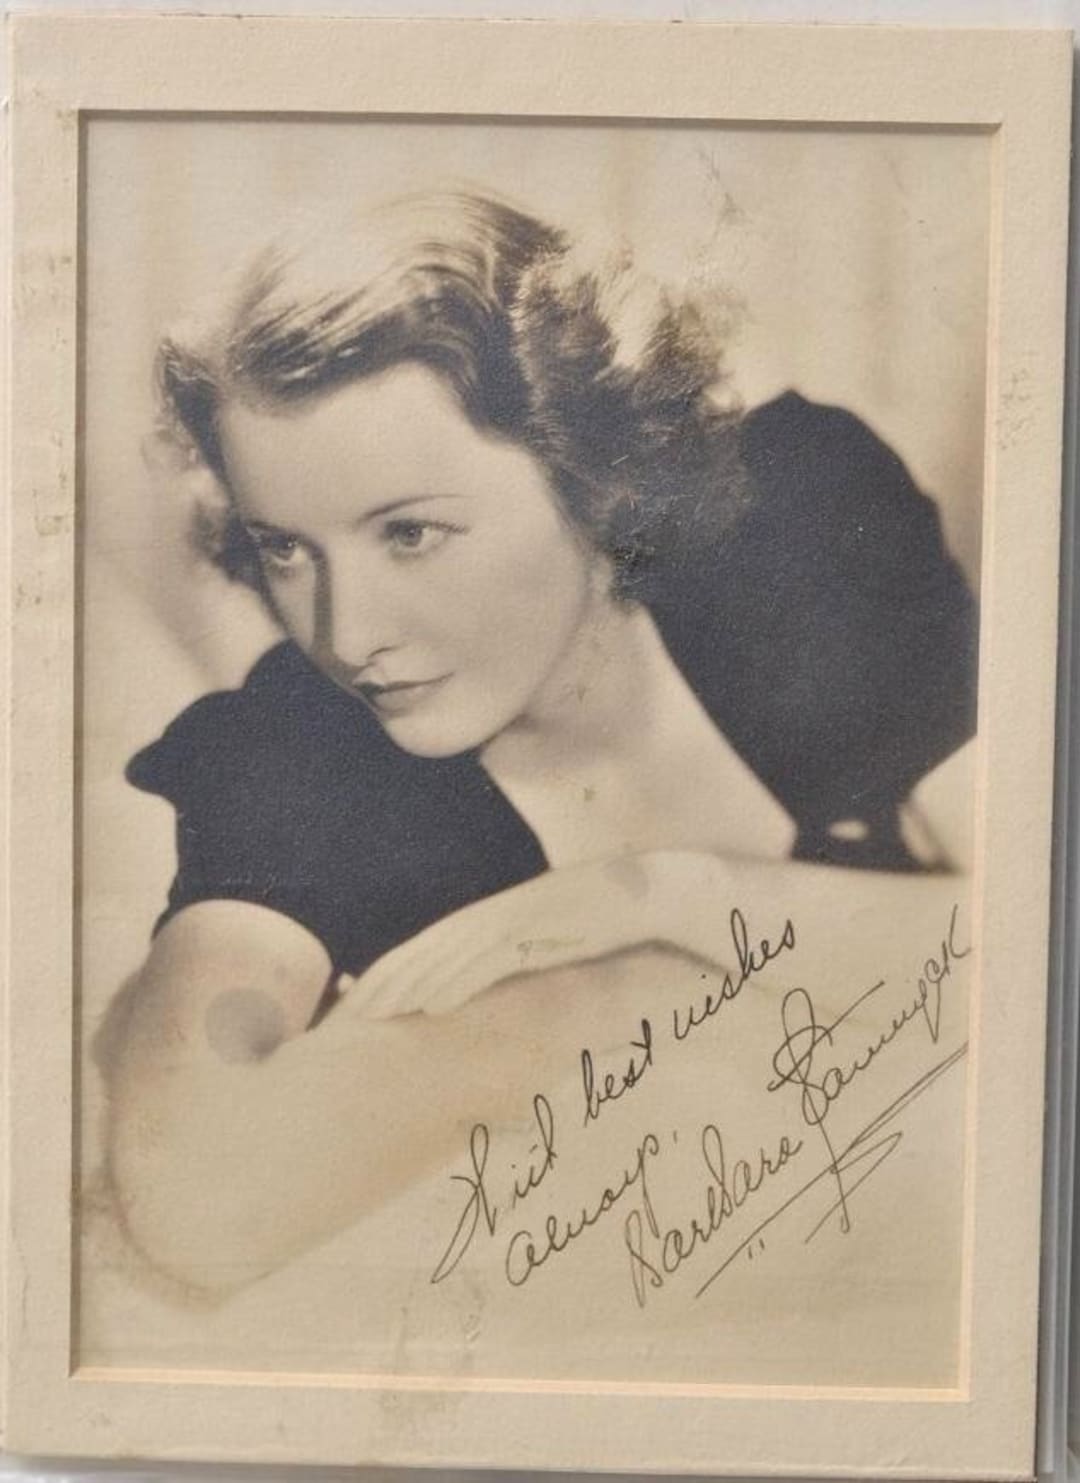 With best wishes
always,
Barbara Stanwyck